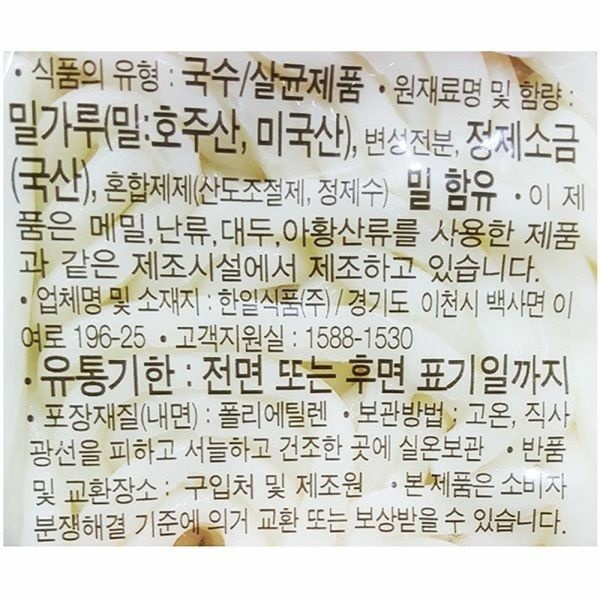 • 식품의 유형 : 국수/살균제품 • 원재료명 및 함량 :
밀가루(밀:호주산, 미국산), 변성전분, 정제소금
(국산), 혼합제제(산도조절제, 정제수) 밀 함유 • 이 제
품은 메밀,난류,대두,아황산류를 사용한 제품
과 같은 제조시설에서 제조하고 있습니다.
• 업체명 및 소재지 : 한일식품(주) / 경기도 이천시 백사면 이
여로 196-25 • 고객지원실 : 1588-1530
• 유통기한 : 전면 또는 후면 표기일까지
• 포장재질(내면) : 폴리에틸렌 • 보관방법 : 고온, 직사
광선을 피하고 서늘하고 건조한 곳에 실온보관 • 반품
및 교환장소 : 구입처 및 제조원 • 본제품은 소비자
분쟁해결 기준에 의거 교환 또는 보상받을 수 있습니다.